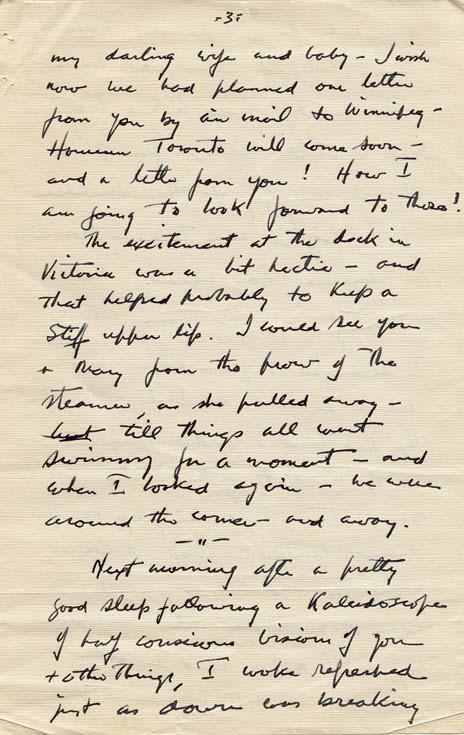 -3-
my darling wife and baby - I wish
now we had planned one letter
from you by air mail to Winnipeg -
However Toronto will come soon -
and a letter from you! How I
am going to look forward to these!
The excitement at the dock in
Victoria was a bit hectic - and
that helped probably to keep a
stiff upper lip. I could see you
+ Mary from the prow of the
steamer, as she pulled away -
but till things all went
swimmy for a moment - and
when I looked again - we were
around the corner and away.
- " -
Next morning after a pretty
good sleep following a Kaleidoscope
of half conscious visions of you
+ other things, I woke refreshed
just as dawn was breaking